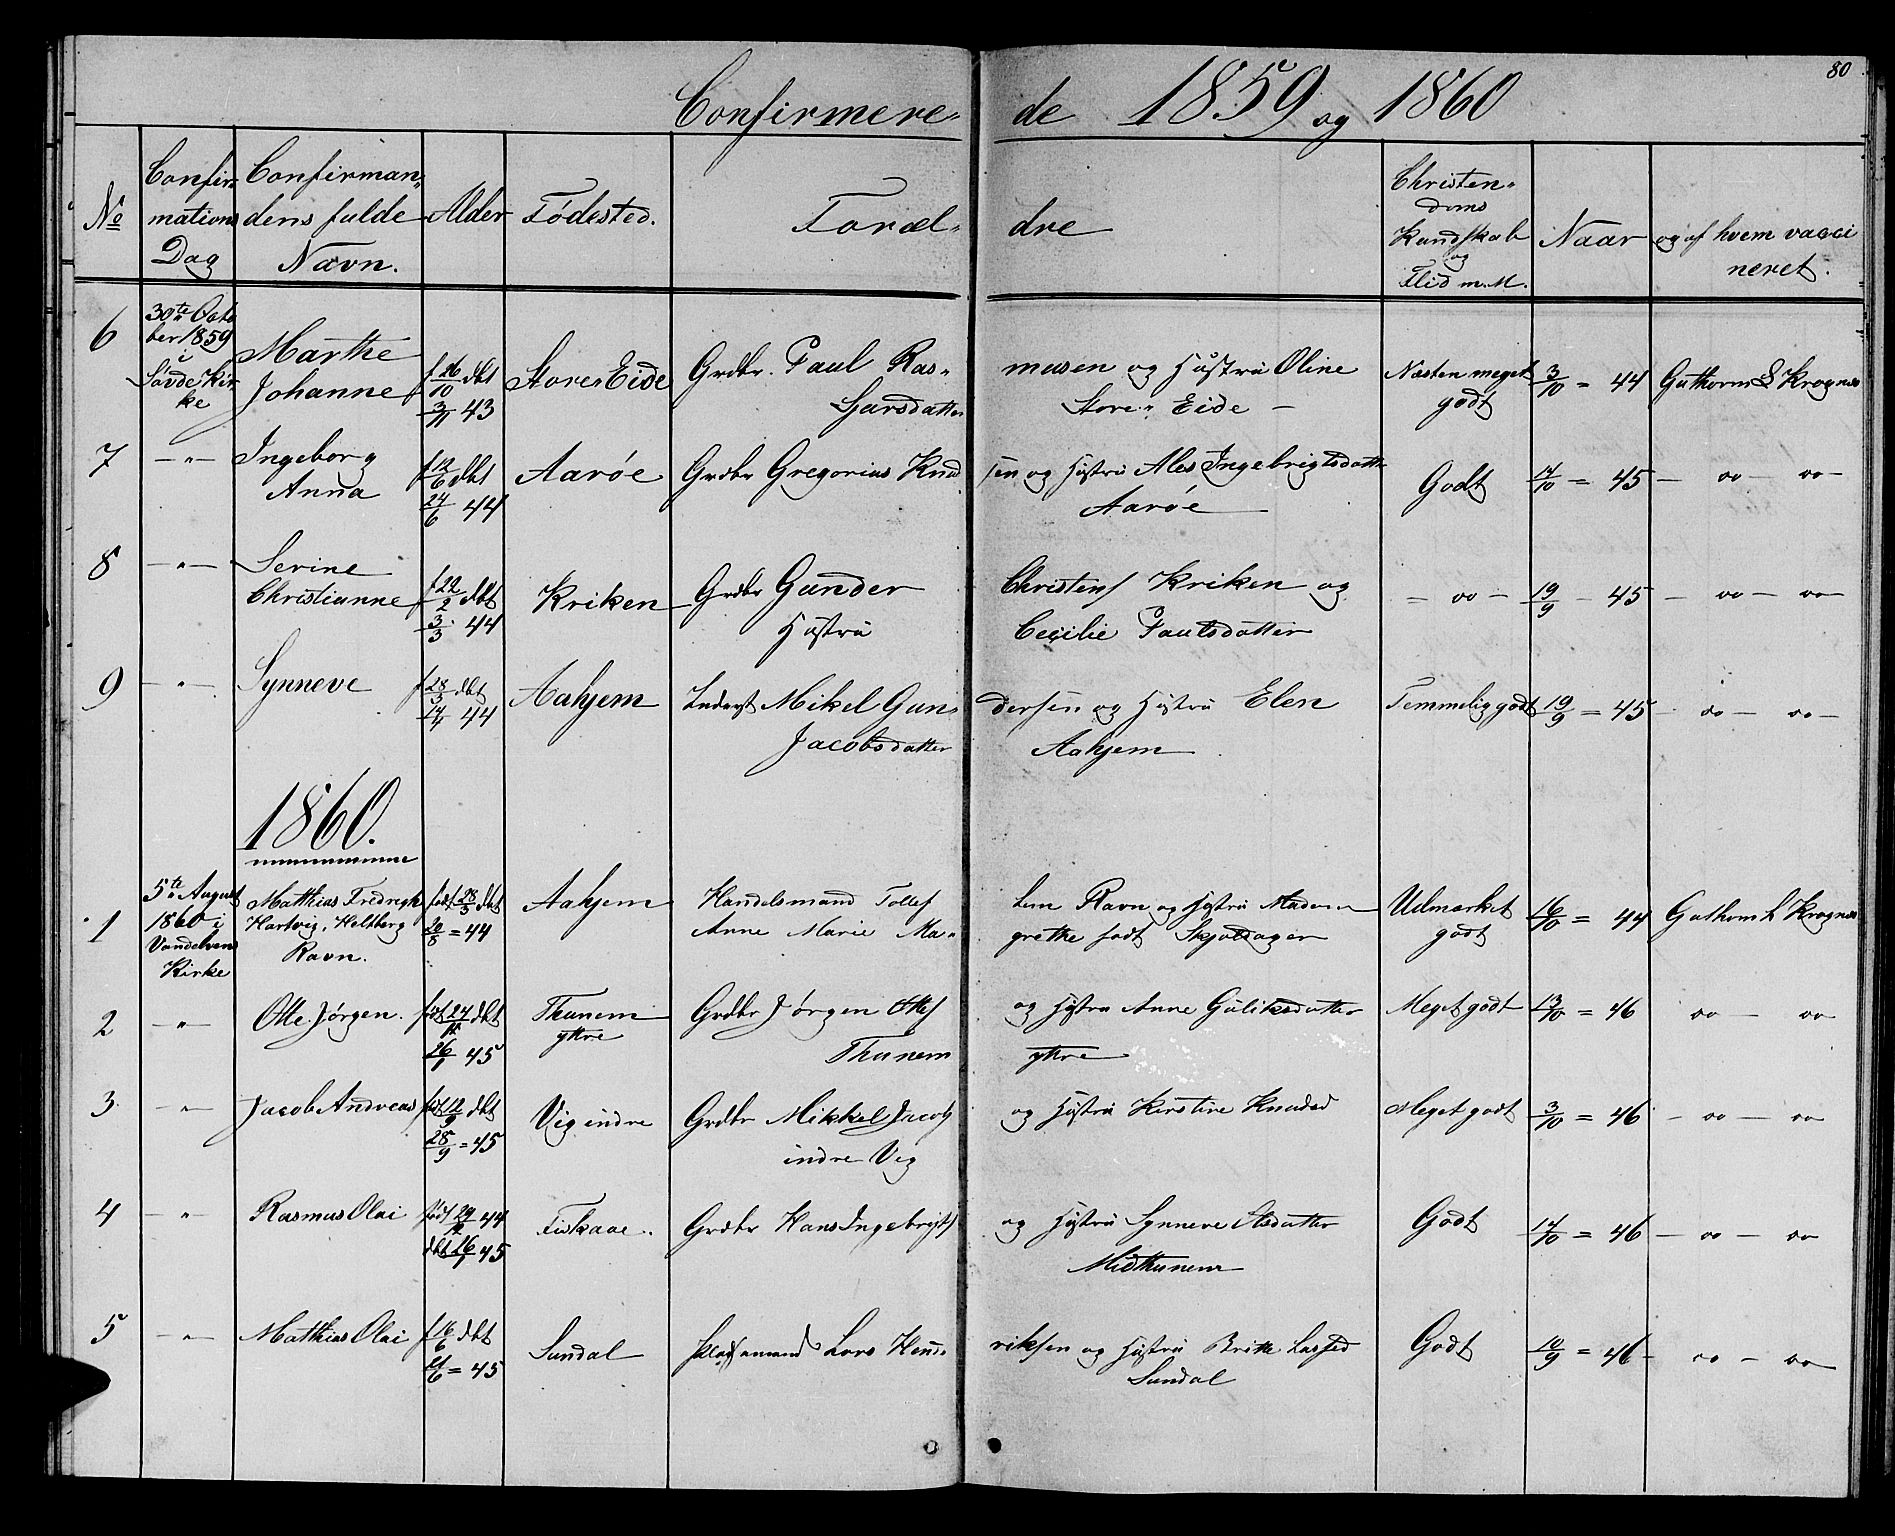 80
Confirmere- de 1859 og 1860
No
Confir-
mations
Dag
Confirman-
dens fulde
Navn.
Alder
Födested.
Foræl- dre
Christen-
doms
Kundskab
og
Flid m.M.
Naar
og af hvem vacci
neret.
6
30te Octo
ber 1859
i
Søvde Kir
ke
Marthe
Johanne
f 26/10 dbt
3/11 43
Store Eide
Grdbr. Paul Ras- musen og Hustru Oline
Larsdatter Store Eide
Næsten meget
godt
3/10 = 44
Guthorm L Krognæs
7 — " —
Ingeborg
Anna
f 12/6 dbt
24/6 44
Aarøe
Grdbr Gregorius Knud sen og Hustru Ales Ingebrigtsdatter
Aarøe
Godt
14/10 = 45 — oo — oo —
8 — " —
Serine
Christianne
f 22/2 dbt
3/3 44
Kriken
Grdbr Gunder Christens Kriken og
Hustru Cecilie Paulsdatter
— oo — 19/9 — 45 — oo — oo —
9 — " —
Synneve
f 28/3 dbt
14/4 44
Aahjem
Inderst Mikel Gun- dersen og Hustru Elen
Jacobsdatter Aahjem
Temmelig godt 19/9 = 45 — oo — oo —
1860.
1
5te August
1860 i
Vandelvens
Kirke
Matthias Fredregh
Hartvig, Heltberg
Ravn.
født 28/3 dbt
20/8 = 44
Aahjem
Handelsmand Tollef Lem Ravn og Hustru Madam
Anne Marie Ma- grethe født Skjoldager
Udmærket
godt
16/10 = 44
Guthorm L Krognæs
2 — " —
Otte Jørgen.
født 24/12 dbt
26/1 45
Thunem
ytre
Grdbr Jørgen Ottes og Hustru Anne Guliksdatter
Thunem ytre
Meget godt
13/10 = 46 oo — oo
3. — " —
Jacob Andreas
født 12/9 dbt
28/9 = 45
Vig indre
Grdbr Mikkel Jacobs og Hustru Kirstine Knudsd
indre Vig
Meget godt
3/10 = 46 — oo — oo
4 — " —
Rasmus Olai
født 29/12 44
dbt 26/1 45
Fiskaae.
Grdbr Hans Ingebrigts og Hustru Synneve
Midthunem
Godt
14/10 = 46 — oo — oo
5 — " —
Mathias Olai
f 16/6 dbt
= 45
Sundal
Pladsemand Lars Hend- riksen og Hustru Britte Lassed
Sundal
Godt
10/9 = 46 — oo — oo